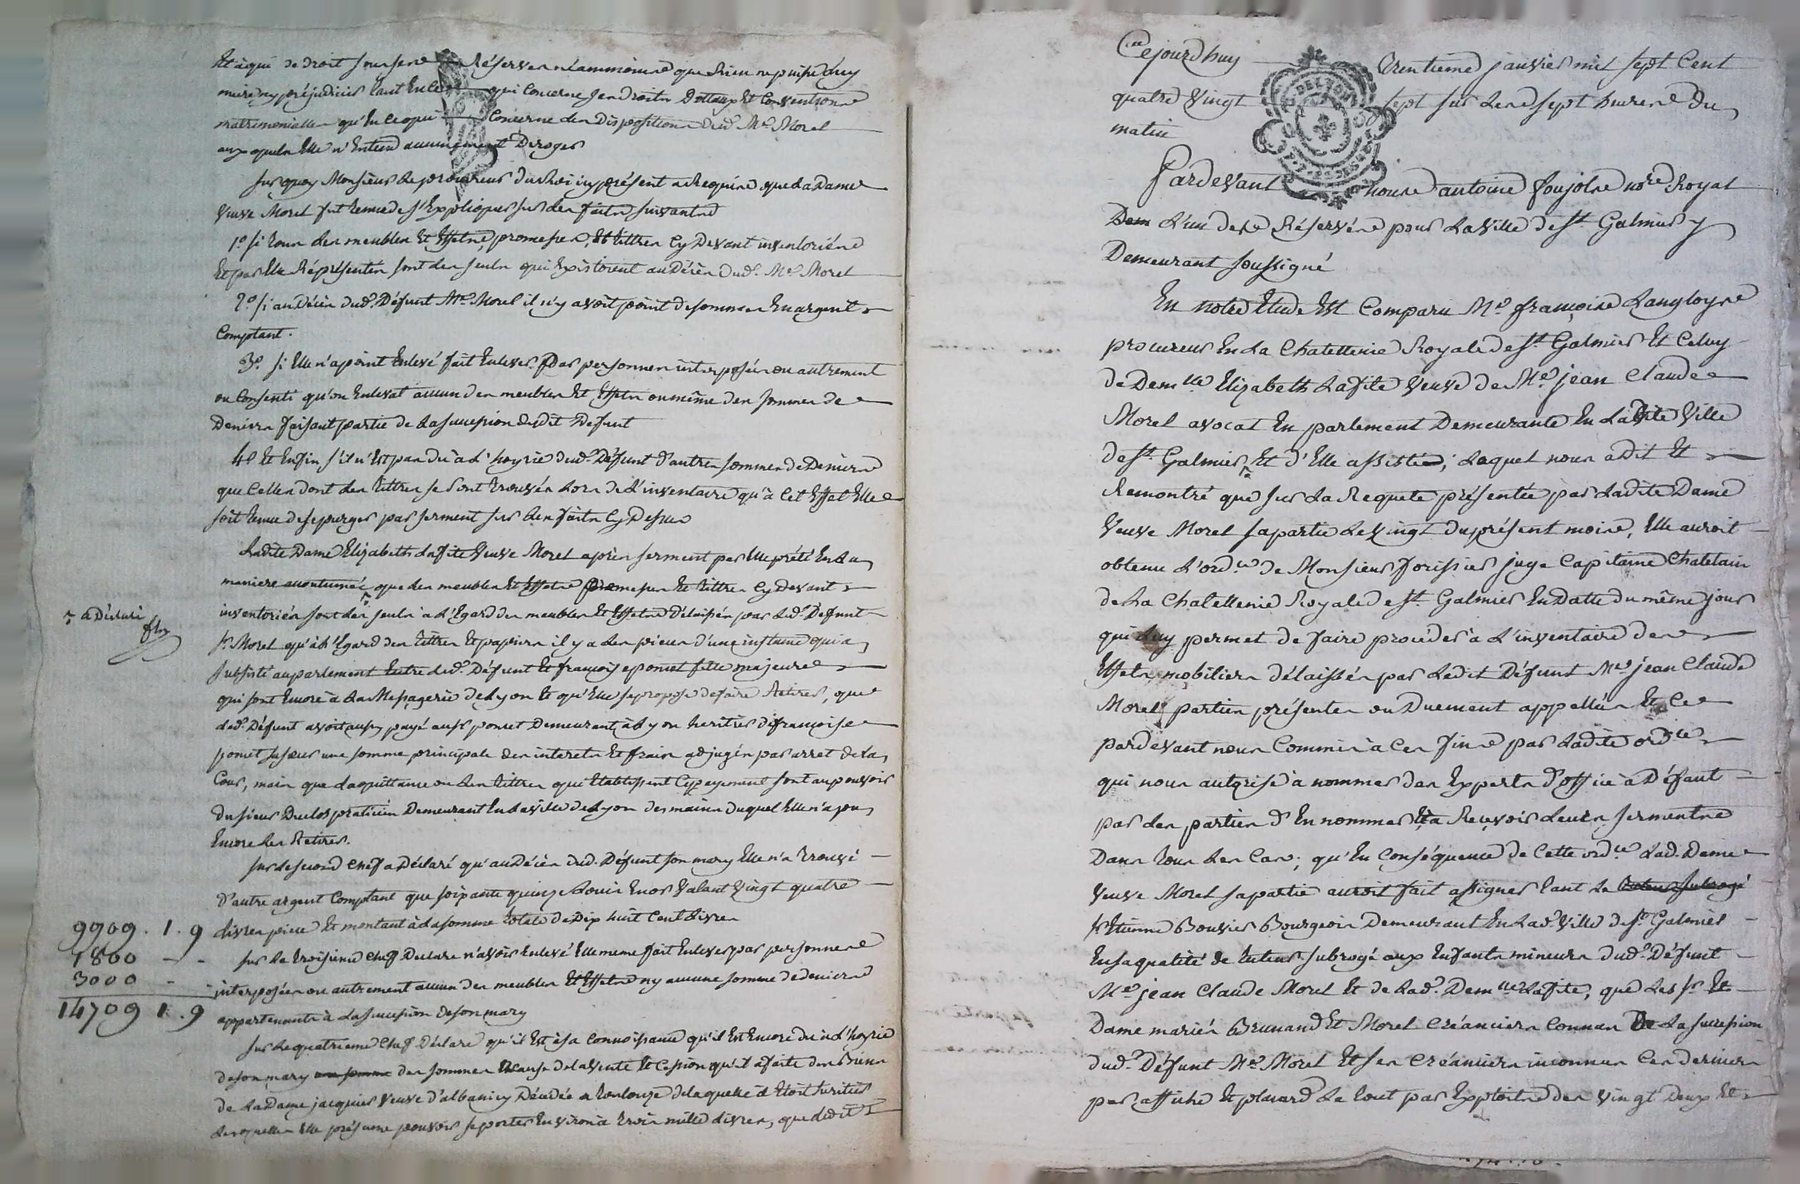 Et à qui de droit sous sere Réserves néammoins que Rien ne puisse luy
nuire ny préjudicier tant En Ce qui Concerne ses droits Dottaux Et Conventions
matrimonialles qu'En Ce qui Concerne des Dispositions dud. Me Morel
auxquels Elle n'Entend aucunement Deroger
Sur quoy Monsieur Le procureur du Roi icy présent a Requis que la Dame
Veuve Morel fut tenue de s'Expliquer sur les faits suivants
1.o Si tous les meubles Et Effets, promesses, Et tittres Cy Devant inventoriés
Et par Elle Représentés sont les seuls qui Existoient au Décès dud. Me Morel
2.o Si au Décès dud. Défunt Me Morel il n'y avoit point de sommes En argent
Comptant.
3.o Si Elle n'a point Enlevé fait Enlever Par personnes interposées ou autrement
ou Consenti qu'on Enlevat aucun des meubles Et Effets ou même des sommes de
Deniers faisant partie de La succession dudit Défunt
4.o Et Enfin s'il n'Est pas dû à L'hoyrie dud. Défunt d'autres sommes de Deniers
que Celles dont Les tittres se sont trouvés Lors de L'inventaire qu'à Cet Effet Elle
soit tenue de se purger par serment sur Les faits Cy Dessus
Ladite Dame Elizabeth Lafite Veuve Morel après serment par Elle prêté En La
maniere accoutumée que les meubles Et Effets Promesses Et tittres Cy Devant
a Déclaré
inventoriés sont les seuls a L'Egard des meubles Et Effets Délaissés par led. Défunt
Sr Morel qu'à L'Egard des tittres Et papiers il y a des pieces d'une instance qui a
subsisté au parlement Entre led. Défunt Et françoise ponset fille majeure
qui sont Encore à La Messagerie de Lyon Et qu'Elle se propose de faire Retirer, que
Led. Défunt avoit aussy payé aux ponset Demeurant à Lyon heritier de françoise
ponset sa sœur une somme principale des interets Et frais adjugés par arret de La
Cour, mais que La quittance ou Les tittres qui Etablissent Ce payement sont au pouvoir
du sieur Duclos praticien Demeurant En La ville de Lyon des mains duquel Elle n'a pu
Encore Les Retirer.
Sur Le second Chef a Déclaré qu'au Décès dud. Défunt son mary Elle n'a trouvé
D'autre argent Comptant que soixante quinze Louis En or Valant Vingt quatre
Livres piece Et montant à La somme totale de Dix huit Cent Livres
Sur Le troisieme Chef Declare n'avoir Enlevé Elle meme fait Enlever par personnes
interposées ou autrement aucun des meubles Et Effets ny aucune somme de deniers
appartenants à La succession de son mary
9909. 1. 9
1800 - -
3000 - -
14709 1. 9
Sur Le quatrieme Chef Déclare qu'il Est à sa Connoissance qu'il Est Encore dû à L'hoyrie
de son mary des sommes à Cause de La vente Et Cession qu'il a faite des Biens
de La Dame jacquier Veuve d'albanicy Décédée a Toulouze de Laquelle il Etoit heritier
Lesquelles Elle présume pouvoir se porter Environ à trois mille Livres, que Ledit
Cejourd'huy trentieme janvier mil sept Cent
quatre Vingt sept sur Les sept heures du
matin
Pardevant nous antoine Poujols nore Royal
L'un des Réservés pour La Ville de St. Galmier y
Demeurant soussigné
En notre Etude Est Comparu Me françois Langloys
procureur En La Chatellenie Royale de St. Galmier Et Celuy
de Demlle Elizabeth Lafite Veuve de Me jean Claude
Morel avocat En parlement Demeurante En Ladite Ville
de St. Galmier, Et d'Elle assisté; Lequel nous a dit Et
Remontré que sur La Requete présentée par Ladite Dame
Veuve Morel sa partie Le Vingt du présent mois, Elle auroit
obtenu L'ordce de Monsieur Forissier juge Capitaine Chatelain
de La Chatellenie Royale de St. Galmier En Datte du même jour
qui Luy permet de faire proceder à L'inventaire des
Effets mobiliers délaissés par Ledit Défunt Me jean Claude
Morel parties présentes ou Duement appellées Et Ce
pardevant nous Commis à Ces fins par Ladite ordce
qui nous autorise à nommer des Experts d'office à Défaut
par Les parties d'En nommer Et a Reçevoir Leurs serments
Dans tous Les Cas; qu'En Conséquence de Cette ordce Lad. Dame
Veuve Morel sa partie auroit fait assigner tant Le tuteur subrogé
Sr Etienne Bouvier Bourgeois Demeurant En Lad. Ville de St. Galmier
En sa qualité de tuteur subrogé aux Enfants mineurs dud. Défunt
Me jean Claude Morel Et de Lad. Demlle Lafite, que Les Sr Et
Dame mariés Brunand Et Morel Créanciers Connus De La succession
dud. Défunt Me Morel Et ses Créanciers inconnus Ces derniers
par affiche Et placard Le tout par Exploits des Vingt Deux Et